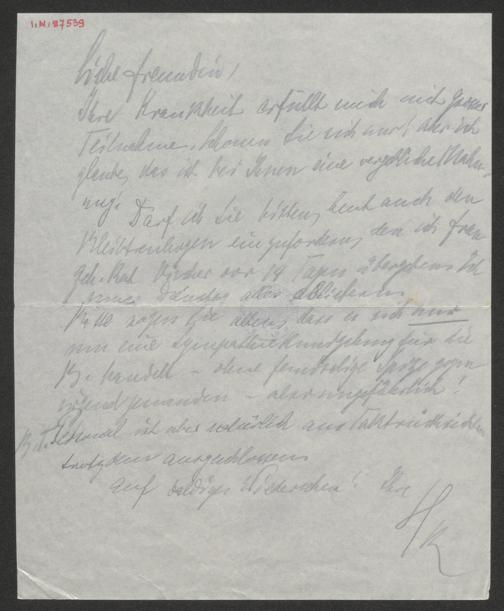 I.N. 87539
Liebe Freundin!
Ihre Krankheit erfüllt mich mit ganzer
Teilnahme. Schonen Sie sich nur! aber ich
glaube, das ist bei Ihnen eine vergebliche Mahn-
ung. Darf ich Sie bitten, heut auch den
einzufordern, den ich Frau
Geh. Rat vor 14 Tagen übergeben. Ich
muss Dienstag alles abliefern.
Bitte sagen Sie allen, dass es sich nur
um eine Sympathiekundgebung für die
B. handelt – ohne feindselige Spitze gegen
irgend jemanden – also ungefährlich!
B. T. Personal ist aber natürlich aus Taktrücksichten
trotzdem ausgeschlossen
Auf baldiges Wiedersehen! Ihr